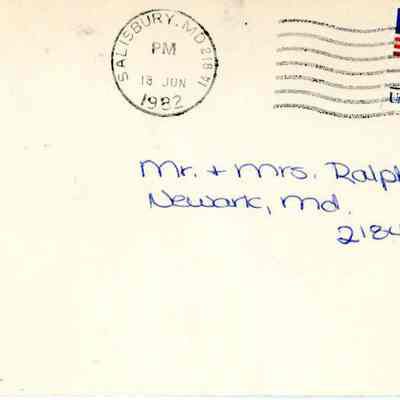 SALISBURY, MD 218
PM
18 JUN
1982
Mr. + Mrs. Ralph
Newark, Md.
2184